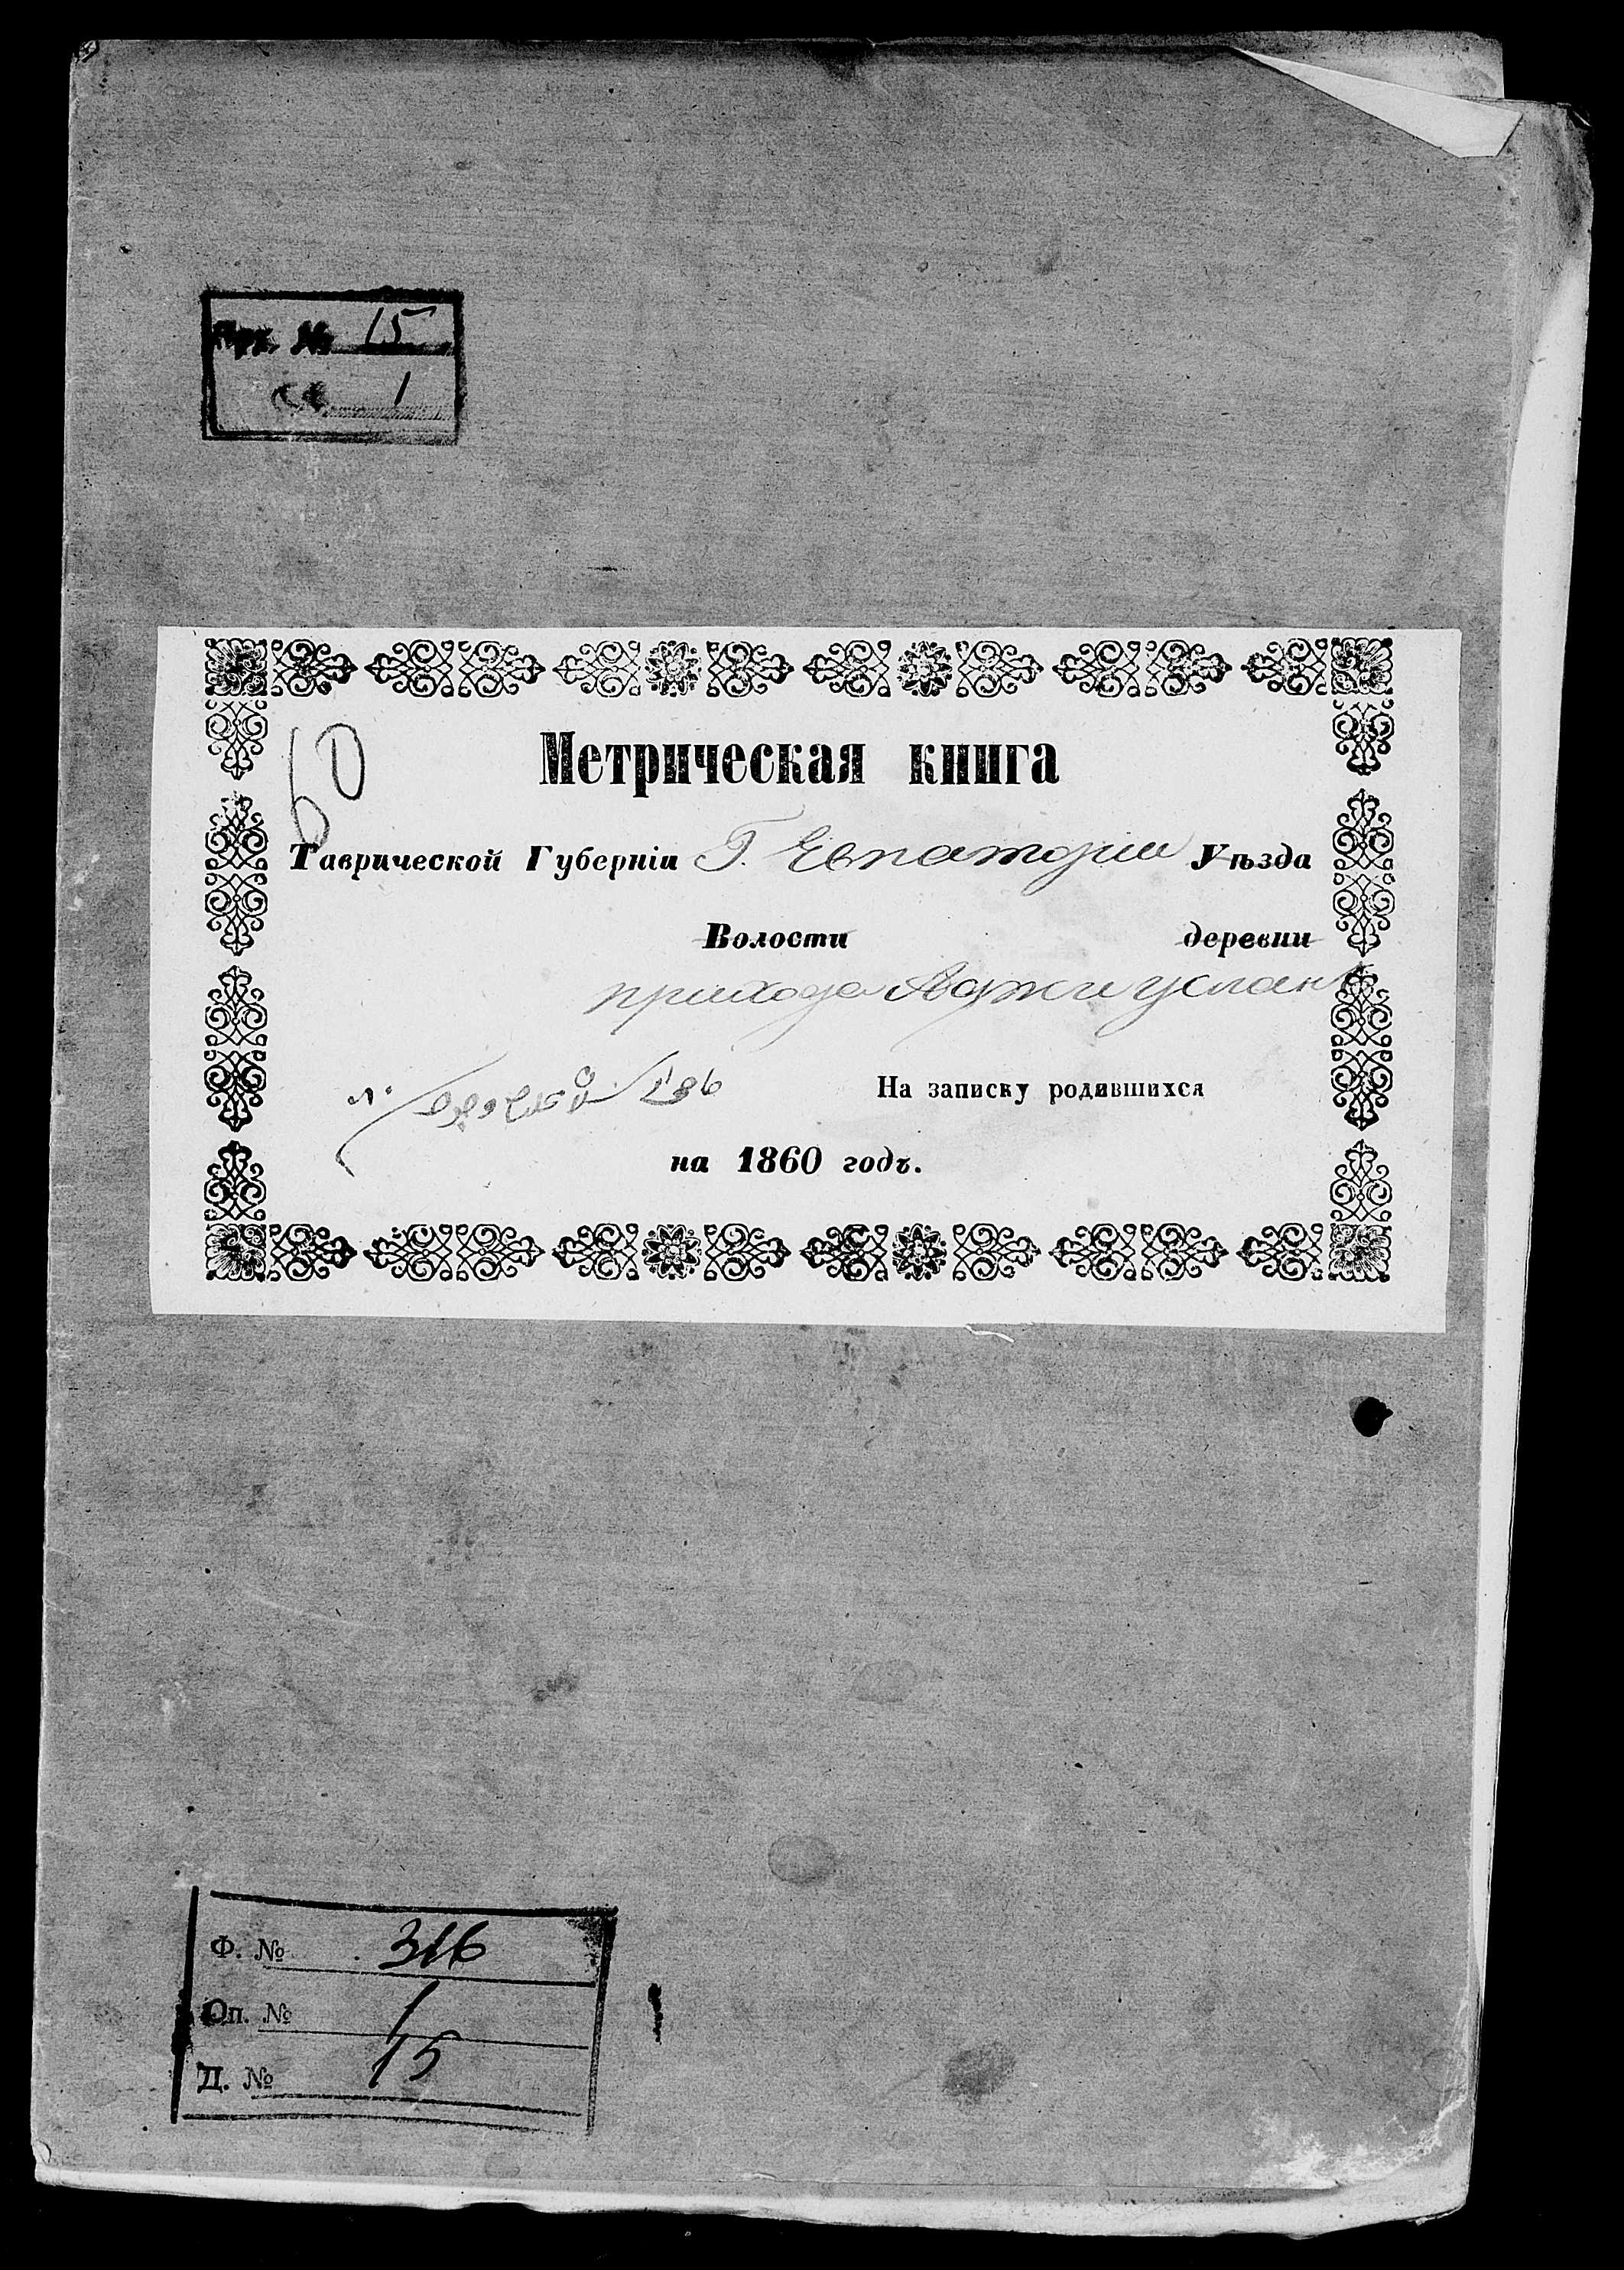 Арх. № 15
св. 1
60
Метрическая книга
Таврической Губерніи Г. Евпаторіи Уѣзда
Волости деревни
прихода
На записку родившихся
на 1860 годъ.
Ф. № 316
Оп. № 1
Д. № 15